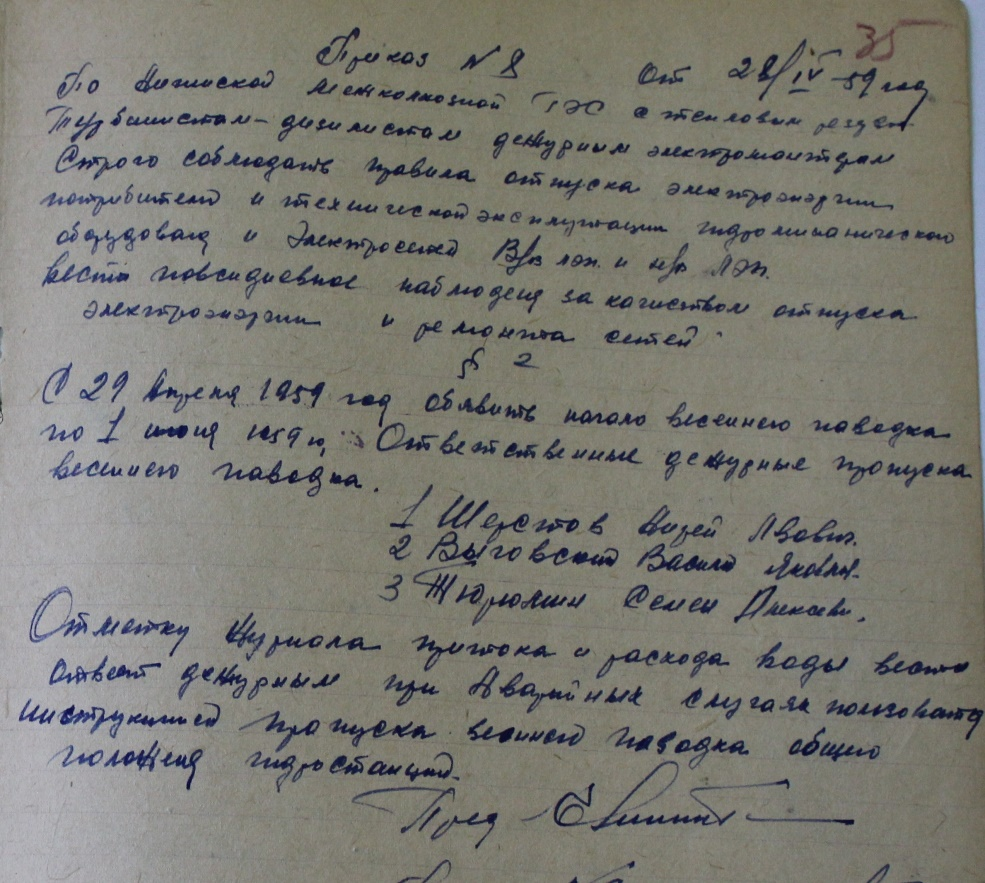 35
Приказ № 8 От 28/IV-59 год
По Межколхозной ГЭС с тепловым резерв
Турбинистам-дизилистам дежурным электромонтерам
Строго соблюдать правила отпуска электроэнэргии
потребителю и технической эксплутации гидромиханического
оборудованя и Электросетей В/в лэп. и н/в ЛЭП.
Вести повсидневное наблюденя за качиством отпуска
электроэнэргии и ремонта сетей
§ 2
С 29 Апреля 1959 год обявить начало весеннего паводка
по 1 июня 1959 г. Ответственные дежурные пропуска
весеннего паводка.
1 Шерстов Андрей Львович.
2 Выговский Василий Яковлев.
3 Семен Алексеев.
Отметку Журнала притока и расхода воды вести
ответ дежурным при Аварийных случаях пользоватся
инструкцией пропуска весеннего паводка общего
положеня гидростанций.
Пред